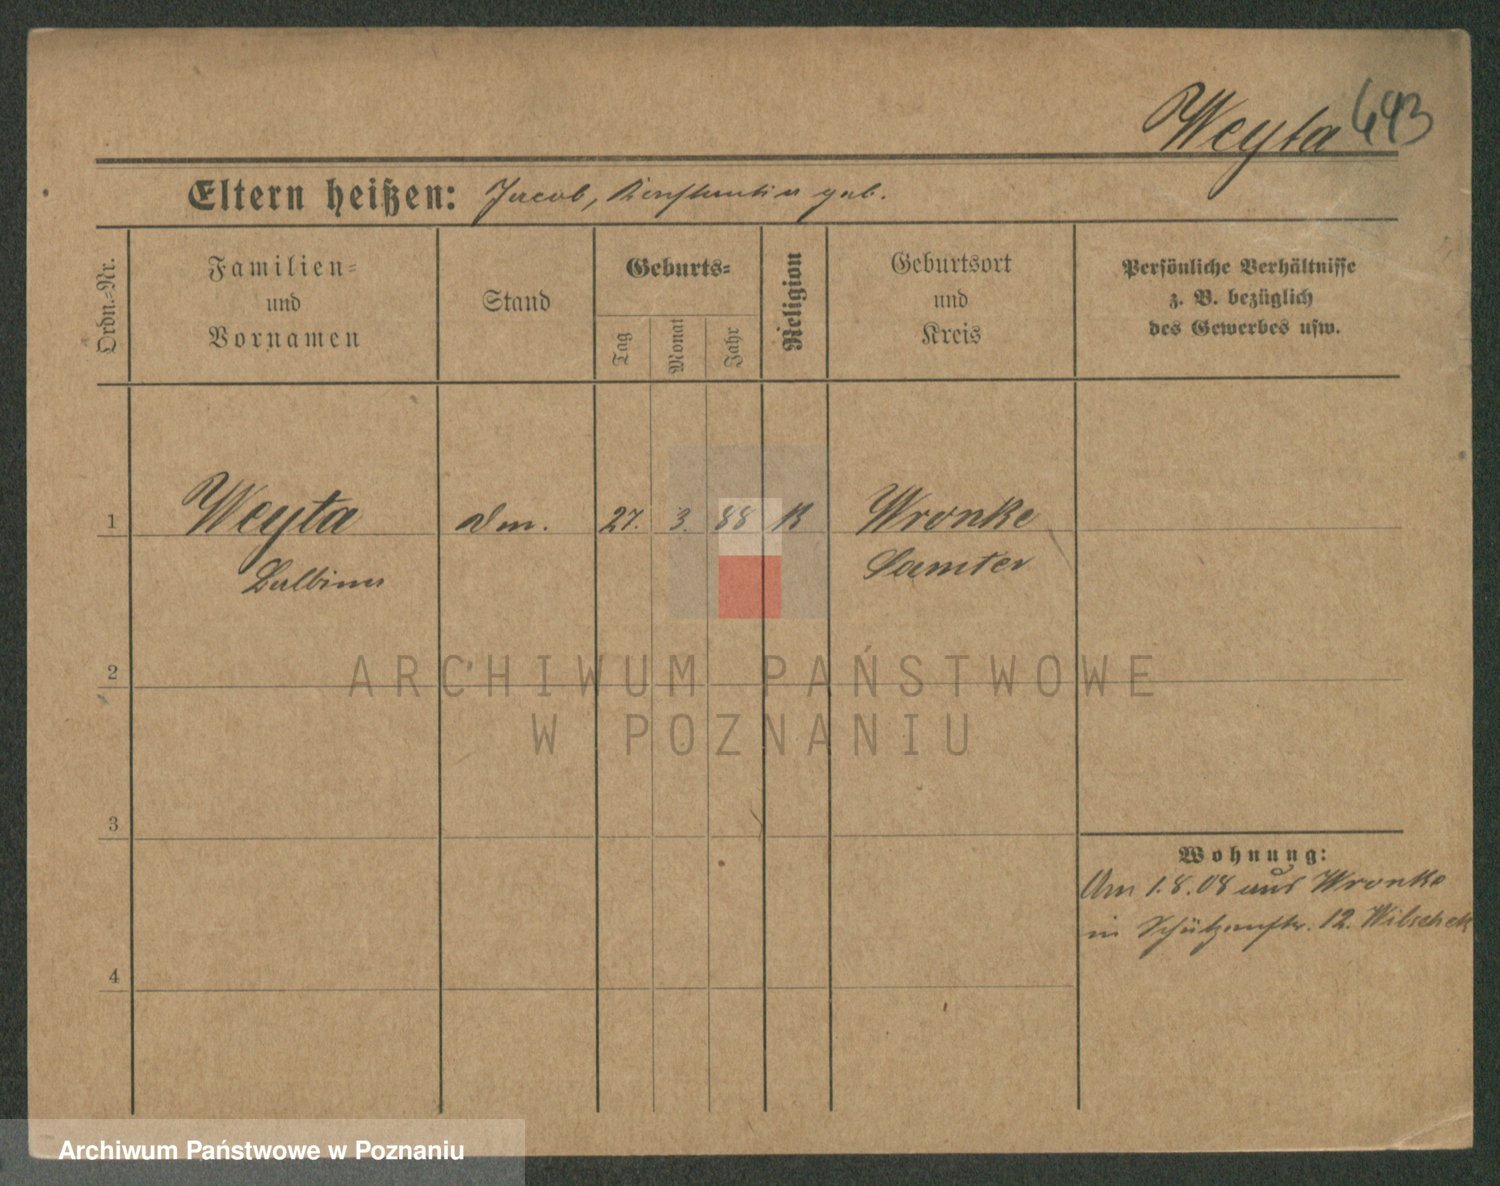 Weyta 643
Eltern heißen: Jacob, Konstantin geb.
Ordn.=Nr.
Familien=
und
Vornamen
Stand
Geburts=
Tag
Monat
Jahr
Religion
Geburtsort
und
Kreis
Persönliche Verhältnisse
z. B. bezüglich
des Gewerbes usw.
1 Weyta 27. 3. 88 K Wronke
Balbina Samter
2
3
Wohnung:
Am 1.8.08 aus Wronke
in Schützenstr. 12. Wilschek
4
ARCHIWUM PAŃSTWOWE
W POZNANIU
Archiwum Państwowe w Poznaniu